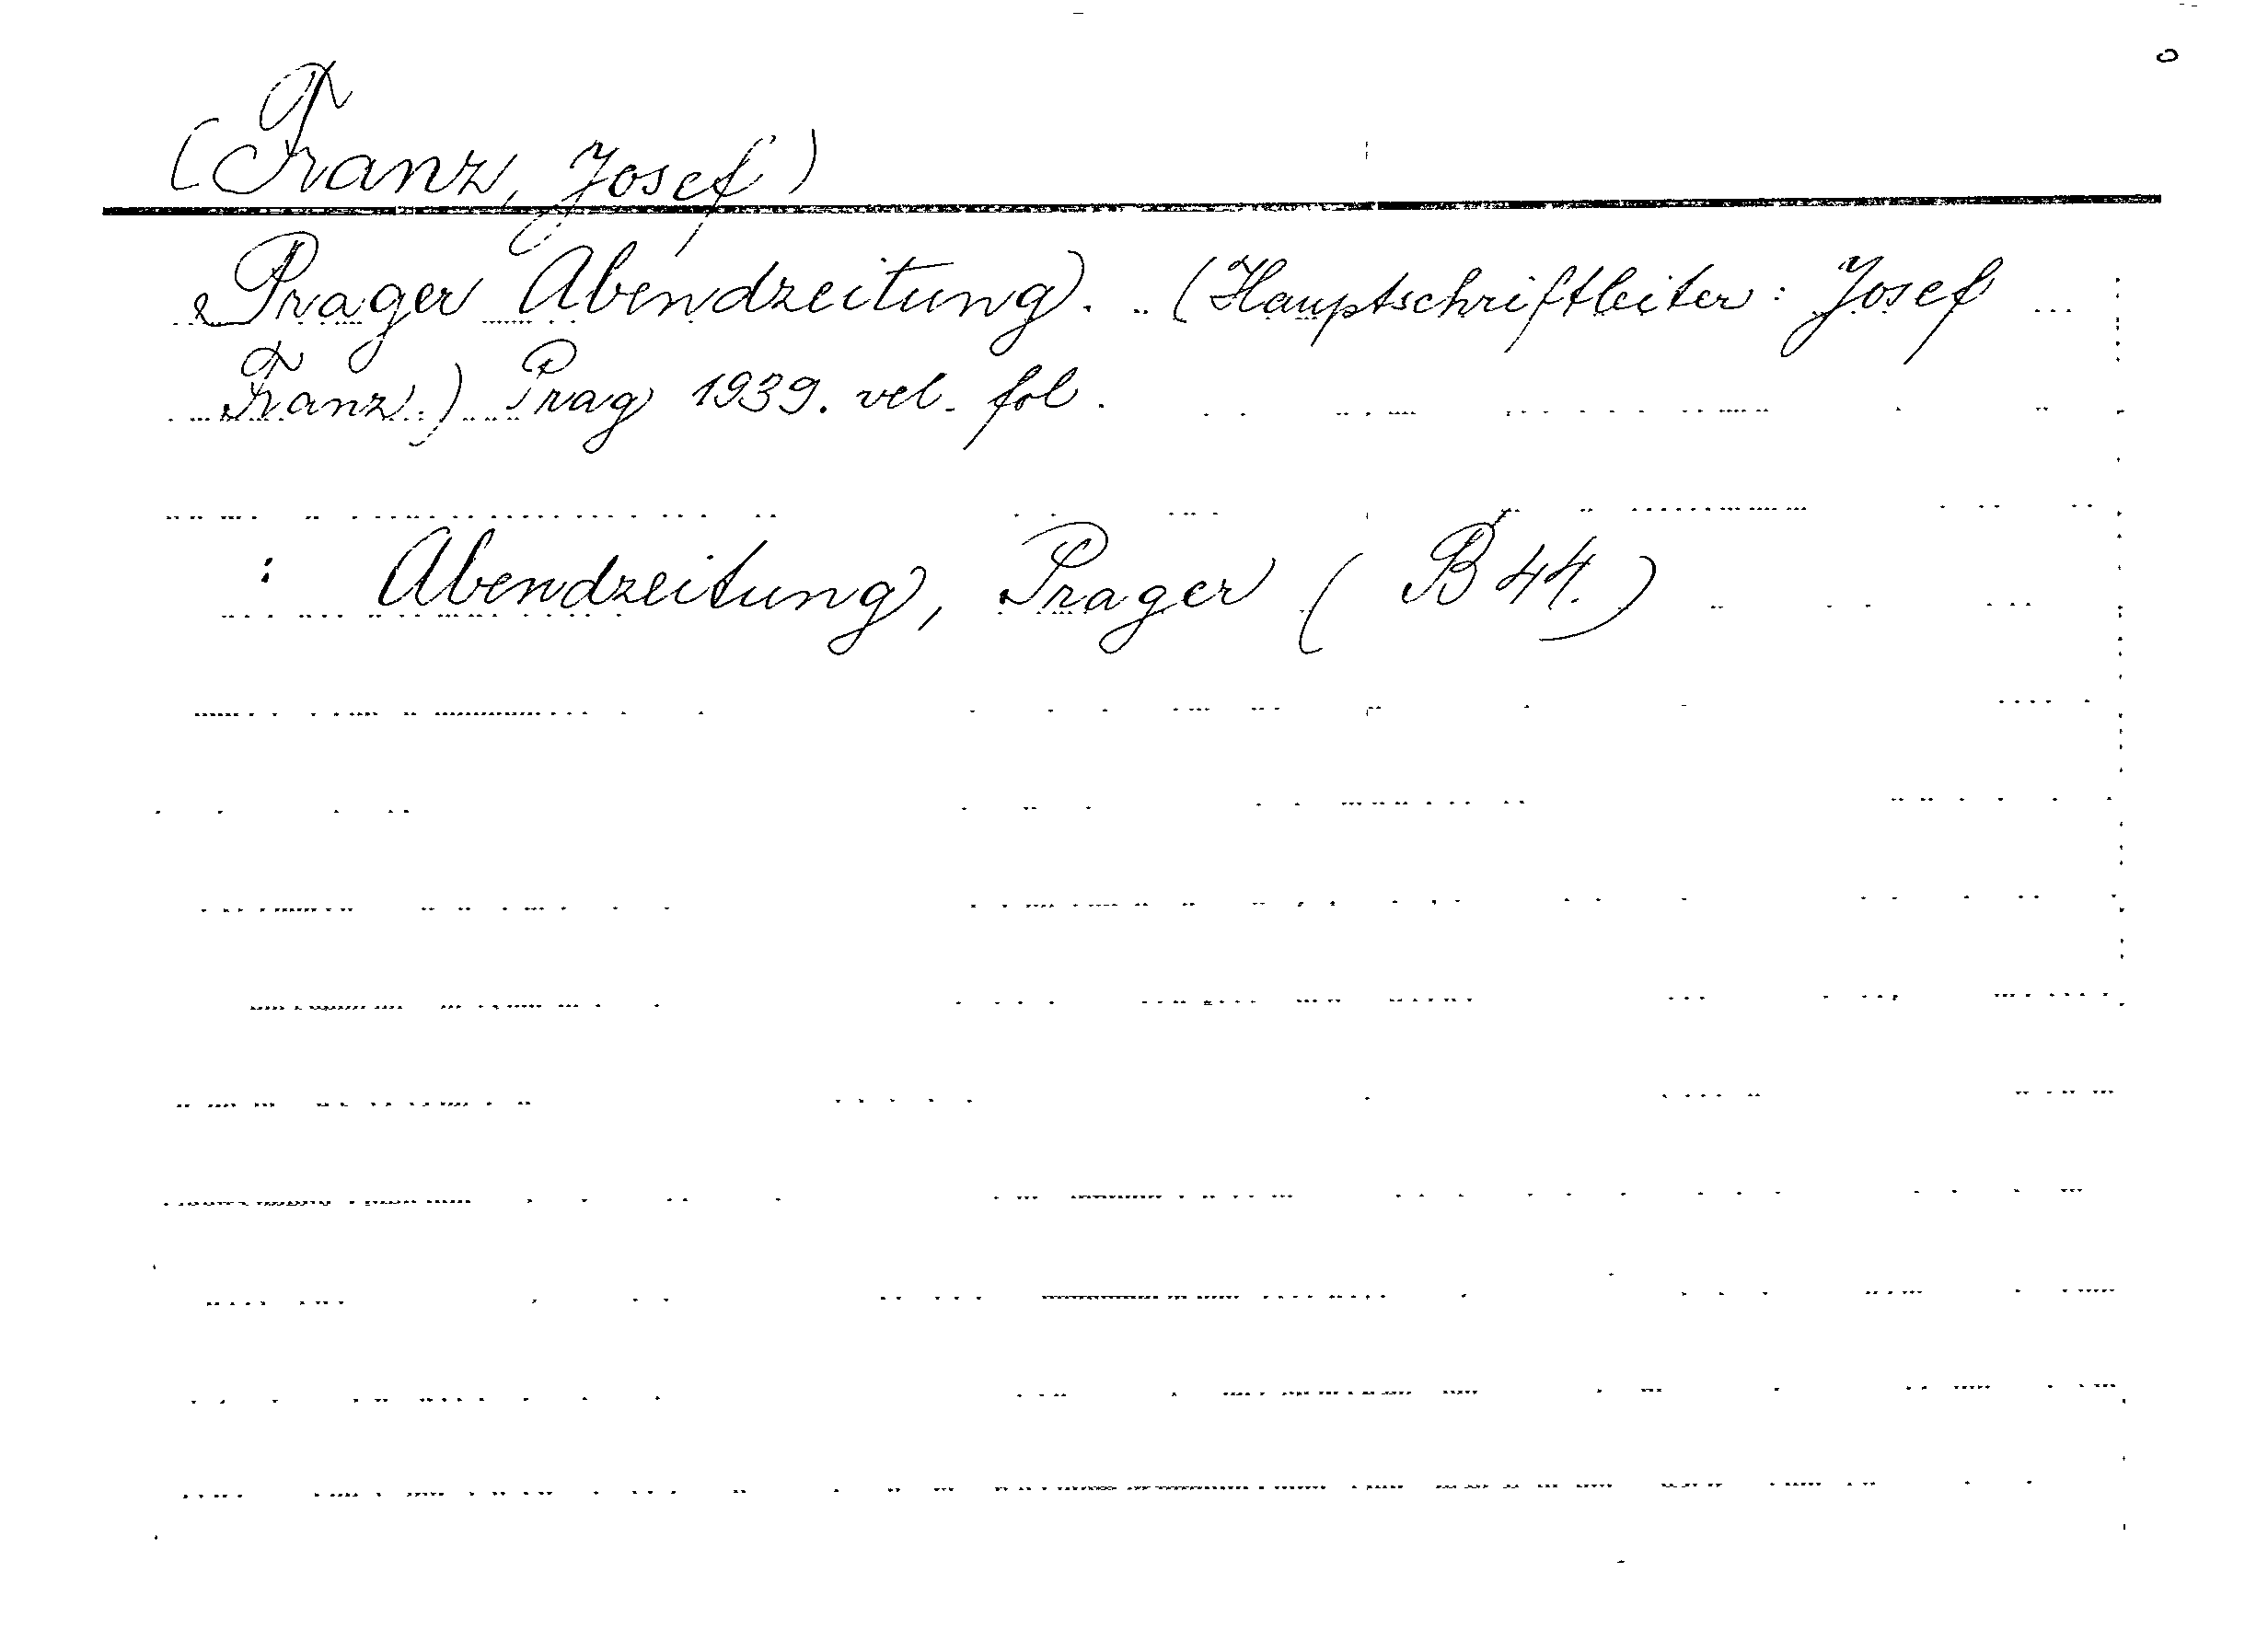 (Franz, Josef)
Prager Abendzeitung. (Hauptschriftleiter: Josef
Franz.) Prag 1939. vel. fol.
: Abendzeitung, Prager (B 44.)